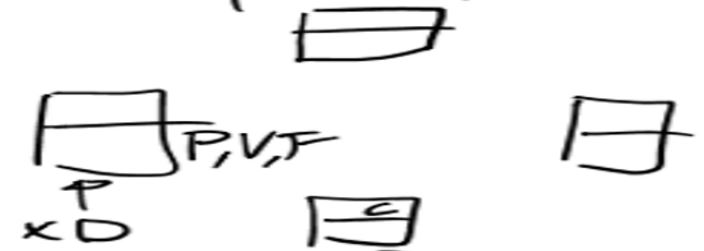 P,V,F
P
x D
C